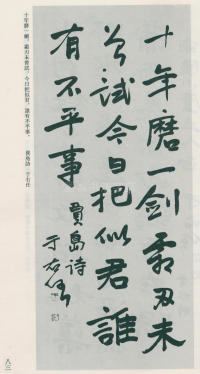 十年磨一劍霜刃未
曾試今日把似君誰
有不平事
賈島詩
于右任
十年磨一劍，霜刃未曾試。今日把似君，誰有不平事。　賈島詩　于右任
八三